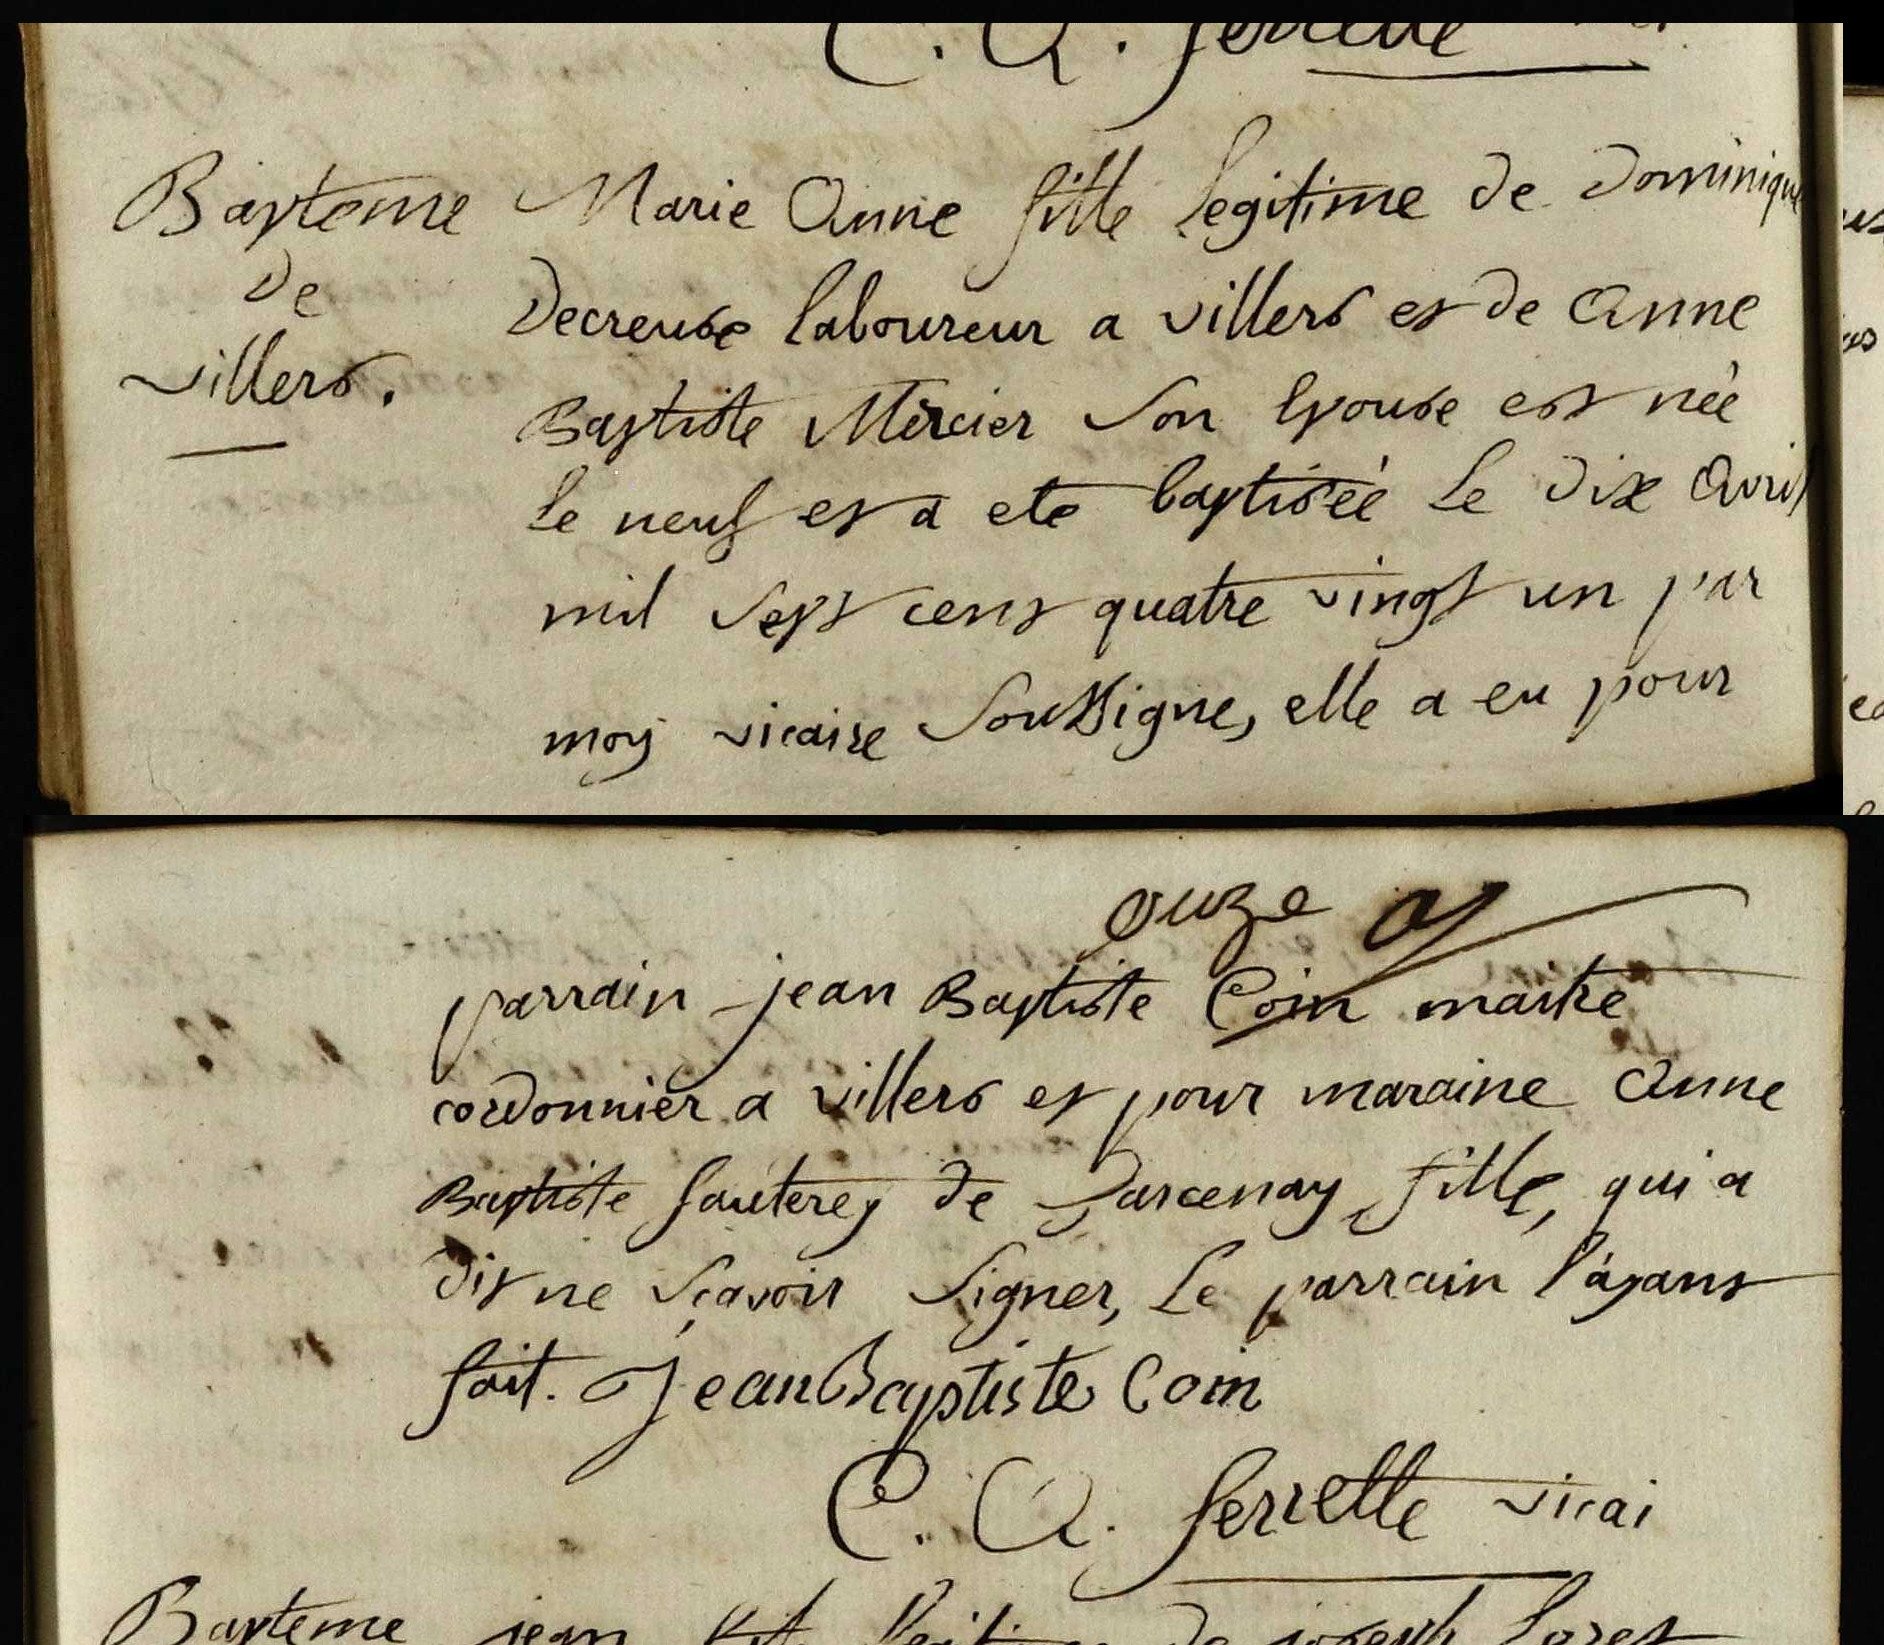 C. Q. ferrette
Bapteme
de
villers.
Marie Anne fille legitime de dominique
Decreuse laboureur a villers et de Anne
Baptiste Mercier son epouse est née
le neuf et a ete baptisée le dix Avril
mil sept cent quatre vingt un par
moy vicaire soussigne, elle a eu pour
onze
parrain jean Baptiste Coin maitre
cordonnier a villers et pour maraine Anne
Baptiste sauterey de Darcenay fille, qui a
dit ne sçavoir signer, le parrain l'áyant
fait. Jean Baptiste Coin
C. Q. ferrette vicai
Bapteme jean fils legitime de joseph